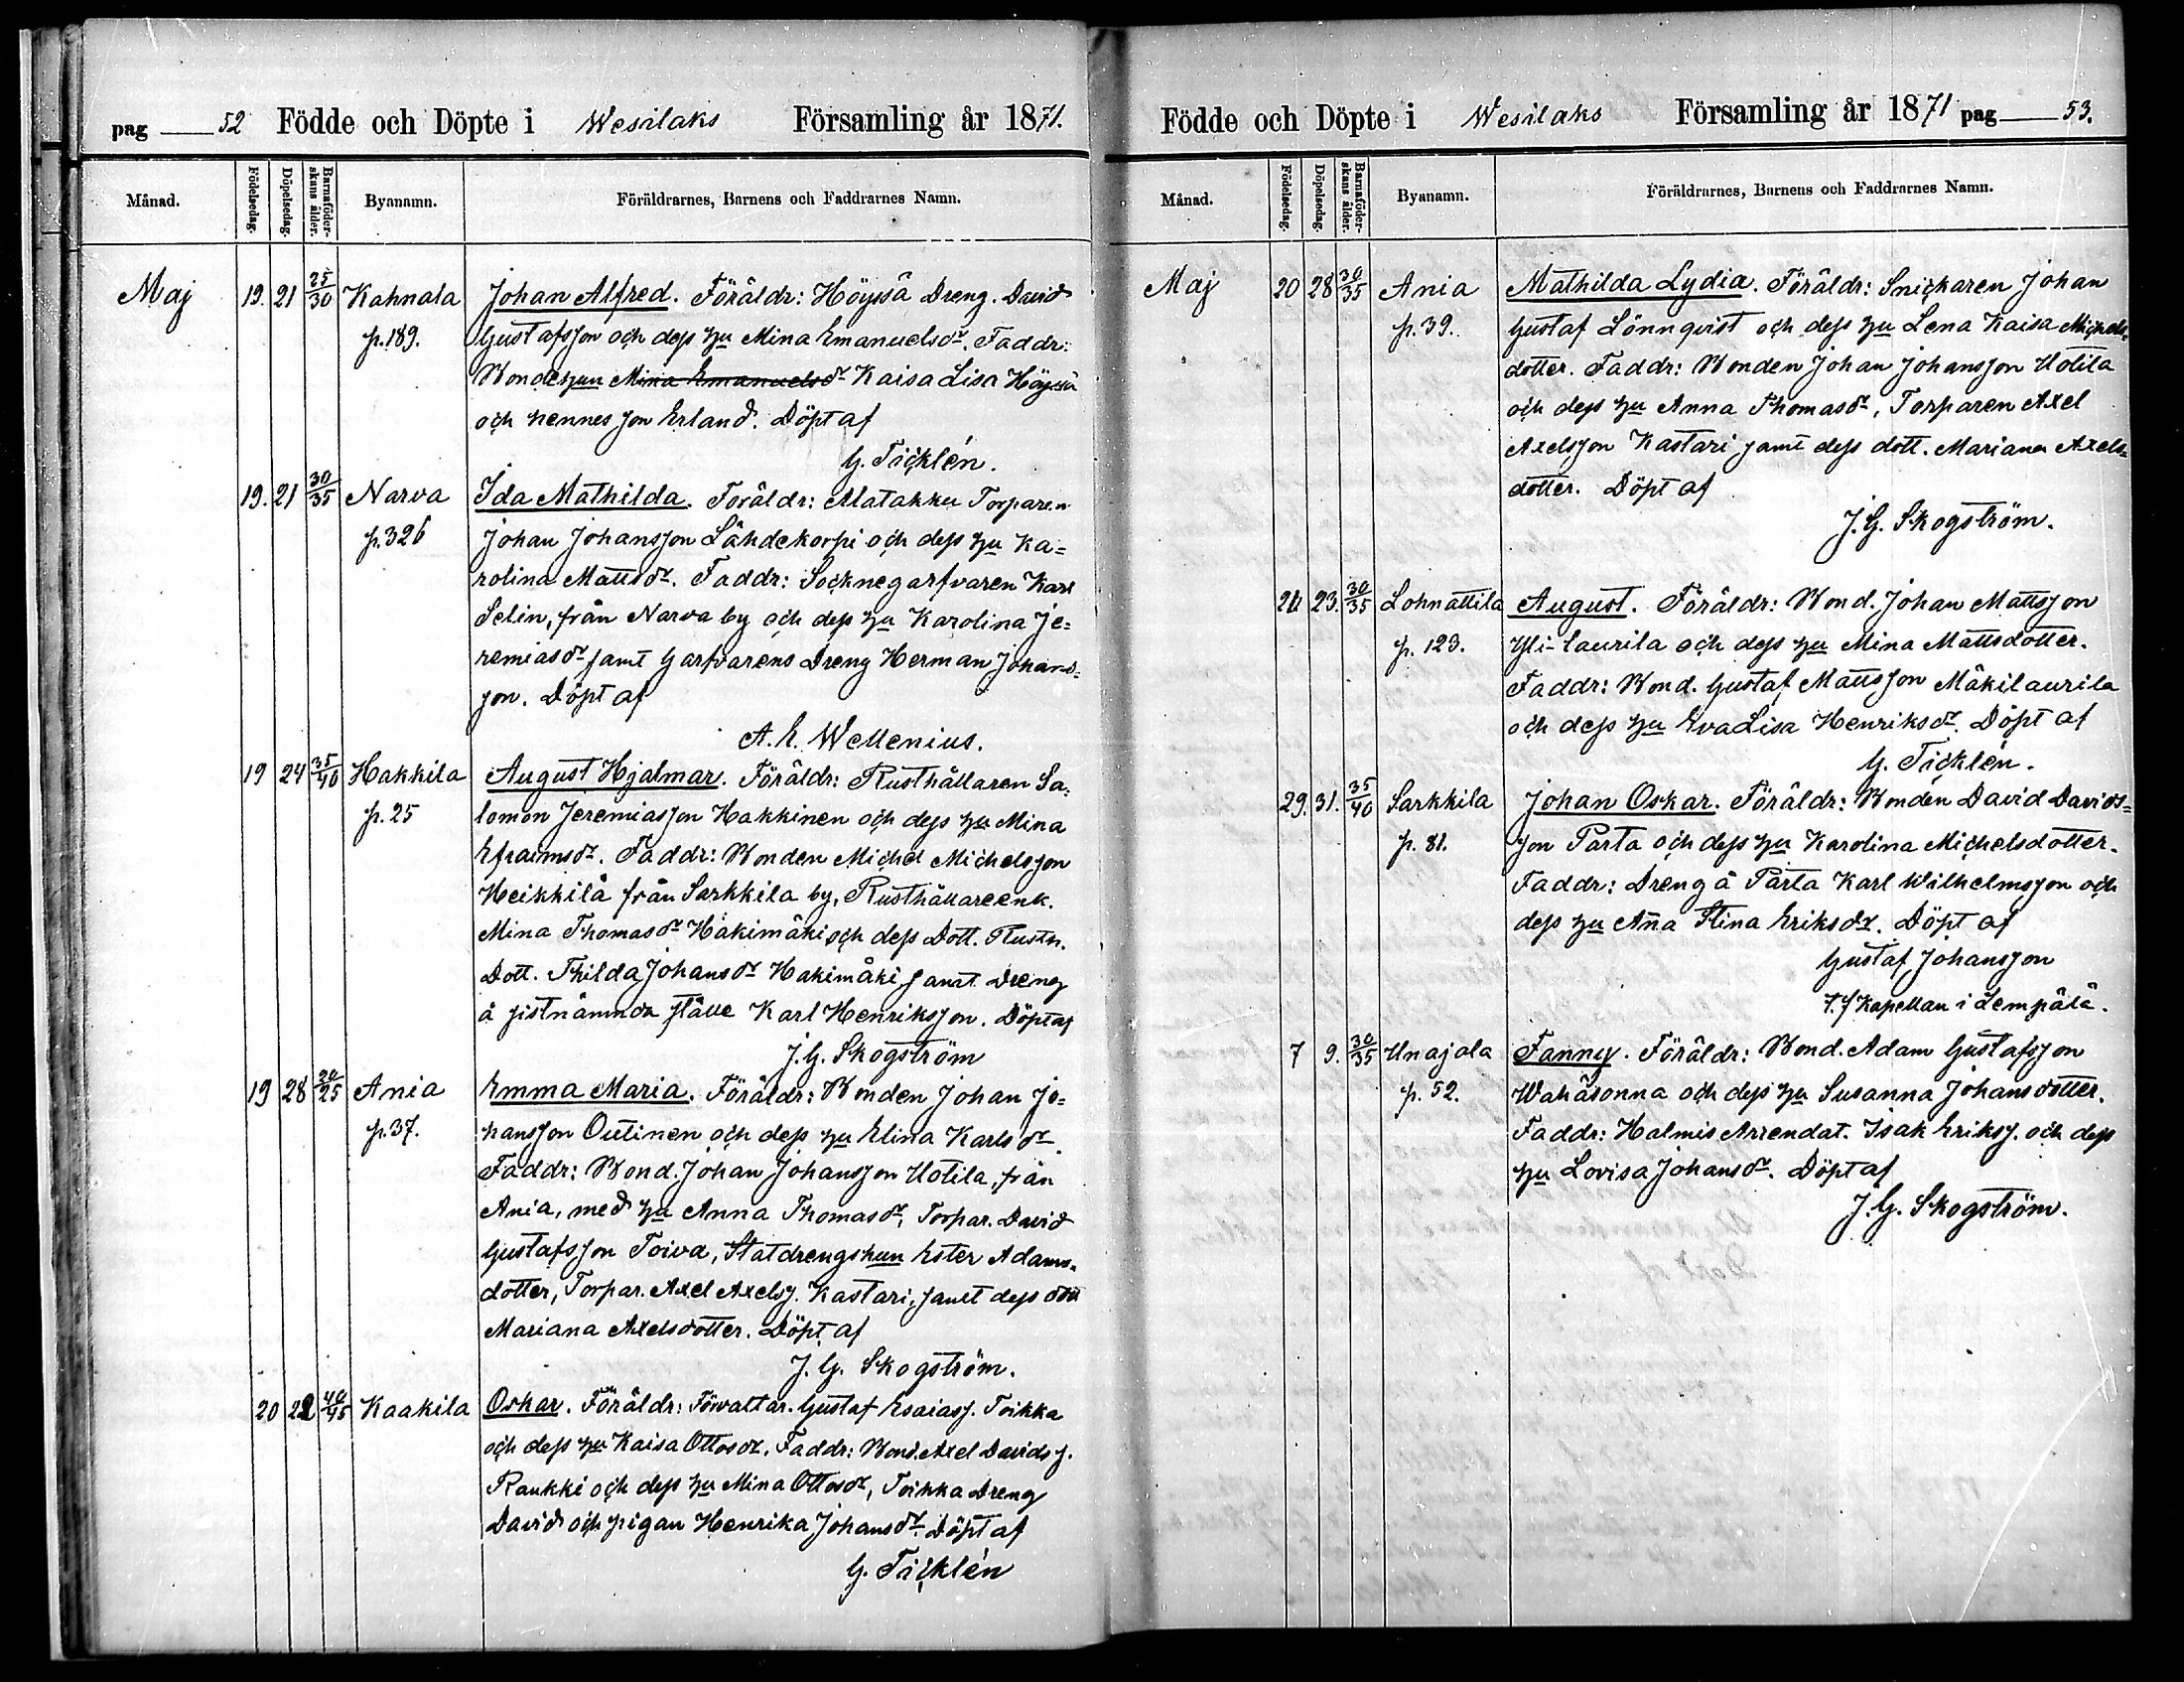 pag 52 Födde och Döpte i Wesilaks Församling år 1871.
Månad. Födelsedag. Döpelsedag. Barnaföderskans ålder. Byanamn. Föräldrarnes, Barnens och Faddrarnes Namn.
Maj 19. 21 25/30 Kahnala Johan Alfred. Föräldr: Höyssä Dreng. David
p. 189. Gustafsson och dess hu Mina Emanuelsdr. Faddr:
Bondehun Mina Emanuelsdr Kaisa Lisa Höyssä
och hennes son Erland. Döpt af
G. Ticklén.
19. 21 30/35 Narva Ida Mathilda. Föräldr: Alatakku Torparen
p. 326 Johan Johansson Lähdekorpi och dess hu Ka=
rolina Mattsdr. Faddr: Socknegarfvaren Karl
Selin, från Narva by och dess hu Karolina Je=
remiasdr samt Garfvarens Dreng Herman Johans=
son. Döpt af
A. E. Wellenius.
19 24 35/40 Hakkila August Hjalmar. Föräldr: Rusthållaren Sa=
p. 25 lomon Jeremiasson Hakkinen och dess hu Mina
Efraimsdr. Faddr: Bonden Michel Michelsson
Heikkilä från Sarkkila by, Rusthållareenk.
Mina Thomasdr Hakimäki och dess Dott. Rusth.
Dott. Thilda Johansdr Hakimäki samt Dreng
å sistnämnda ställe Karl Henriksson. Döpt af
J. G. Skogström
19 28 20/25 Ania Emma Maria. Föräldr: Bonden Johan Jo=
p. 37. hansson Outinen och dess hu Elina Karlsdr.
Faddr: Bond. Johan Johansson Uotila, från
Ania, med hu Anna Thomasdr, Torpar. David
Gustafsson Toiva, Statdrengshun Ester Adams=
dotter, Torpar. Axel Axelss. Kastari, samt dess dott
Mariana Axelsdotter. Döpt af
J. G. Skogström.
20 22 40/45 Kaakila Oskar. Föräldr: Förvaltar. Gustaf Esaiass. Toikka
och dess hu Kaisa Ottosdr. Faddr: Bond. Axel Davidss.
Raukki och dess hu Mina Ottosdr, Toikka Dreng
David och pigan Henrika Johansdr. Döpt af
G. Ticklén
Födde och Döpte i Wesilaks Församling år 1871 pag 53.
Månad. Födelsedag. Döpelsedag. Barnaföderskans ålder. Byanamn. Föräldrarnes, Barnens och Faddrarnes Namn.
Maj 20 28 30/35 Ania Mathilda Lydia. Föräldr: Snickaren Johan
p. 39. Gustaf Lönnqvist och dess hu Lena Kaisa Michels=
dotter. Faddr: Bonden Johan Johansson Uotila
och dess hu Anna Thomasdr, Torparen Axel
Axelsson Kastari samt dess dott. Mariana Axels=
dotter. Döpt af
J. G. Skogström.
23. 30/35 Lohnattila August. Föräldr: Bond. Johan Mattsson
p. 123. Yli-Laurila och dess hu Mina Mattsdotter.
Faddr: Bond. Gustaf Mattsson Mäkilaurila
och dess hu Eva Lisa Henriksdr. Döpt af
G. Ticklén.
29. 31. 35/40 Sarkkila Johan Oskar. Föräldr: Bonden David Davids=
p. 81. son Parta och dess hu Karolina Michelsdotter.
Faddr: Dreng å Parta Karl Wilhelmsson och
dess hu Anna Stina Eriksdr. Döpt af
Gustaf Johansson
t.f Kapellan i Lempälä.
7 9. 30/35 Unajala Fanny. Föräldr: Bond. Adam Gustafsson
p. 52. Wahäsonna och dess hu Susanna Johansdotter.
Faddr: Halmis Arrendat. Isak Erikss. och dess
hu Lovisa Johansdr. Döpt af
J. G. Skogström.